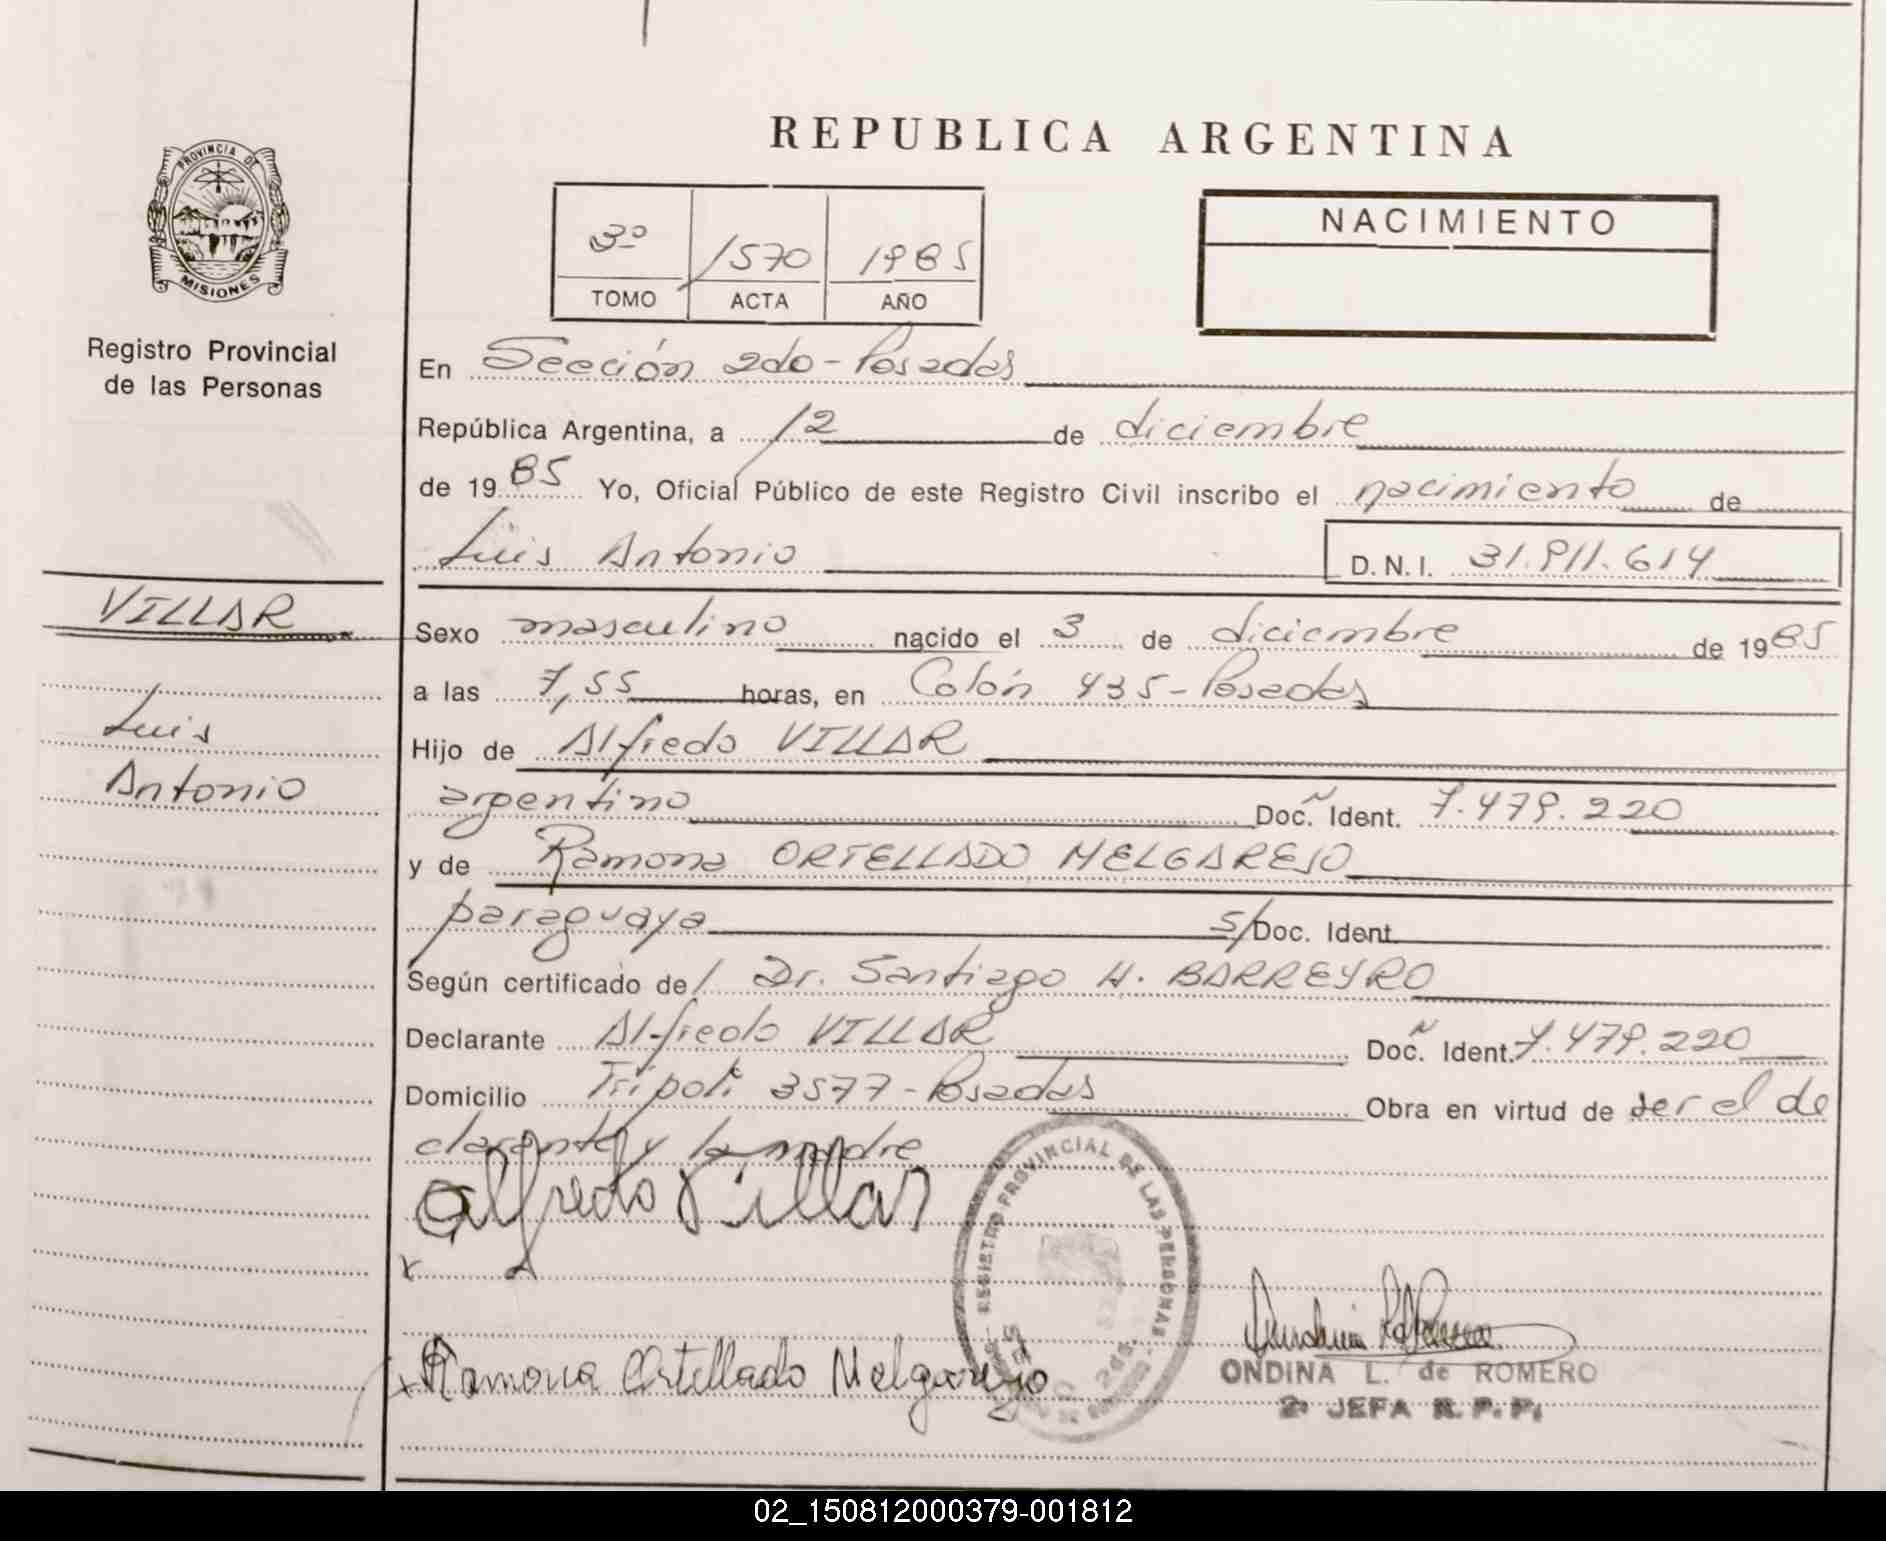 REPUBLICA ARGENTINA
PROVINCIA DE
MISIONES
Registro Provincial
de las Personas
3º 1570 1985
TOMO ACTA AÑO
NACIMIENTO
En Sección 2do - Posadas
República Argentina, a 12 de diciembre
de 1985 Yo, Oficial Público de este Registro Civil inscribo el nacimiento de
Luis Antonio D.N.I. 31.911.614
VILLAR
Luis
Antonio
Sexo masculino nacido el 3 de diciembre de 1985
a las 7,55 horas, en Colón 435 - Posadas
Hijo de Alfredo VILLAR
argentino Doc. Ident. 7.479.220
y de Ramona ORTELLADO MELGAREJO
paraguaya s/Doc. Ident.
Según certificado de/ Dr. Santiago H. BARREYRO
Declarante Alfredo VILLAR Doc. Ident. 7.479.220
Domicilio Trípoli 3577 - Posadas Obra en virtud de ser el de
clarante y la madre
Alfredo Villar
x
x Ramona Ortellado Melgarejo
REGISTRO PROVINCIAL DE LAS PERSONAS
ONDINA L. de ROMERO
2ª JEFA R. P. P.
02_150812000379-001812